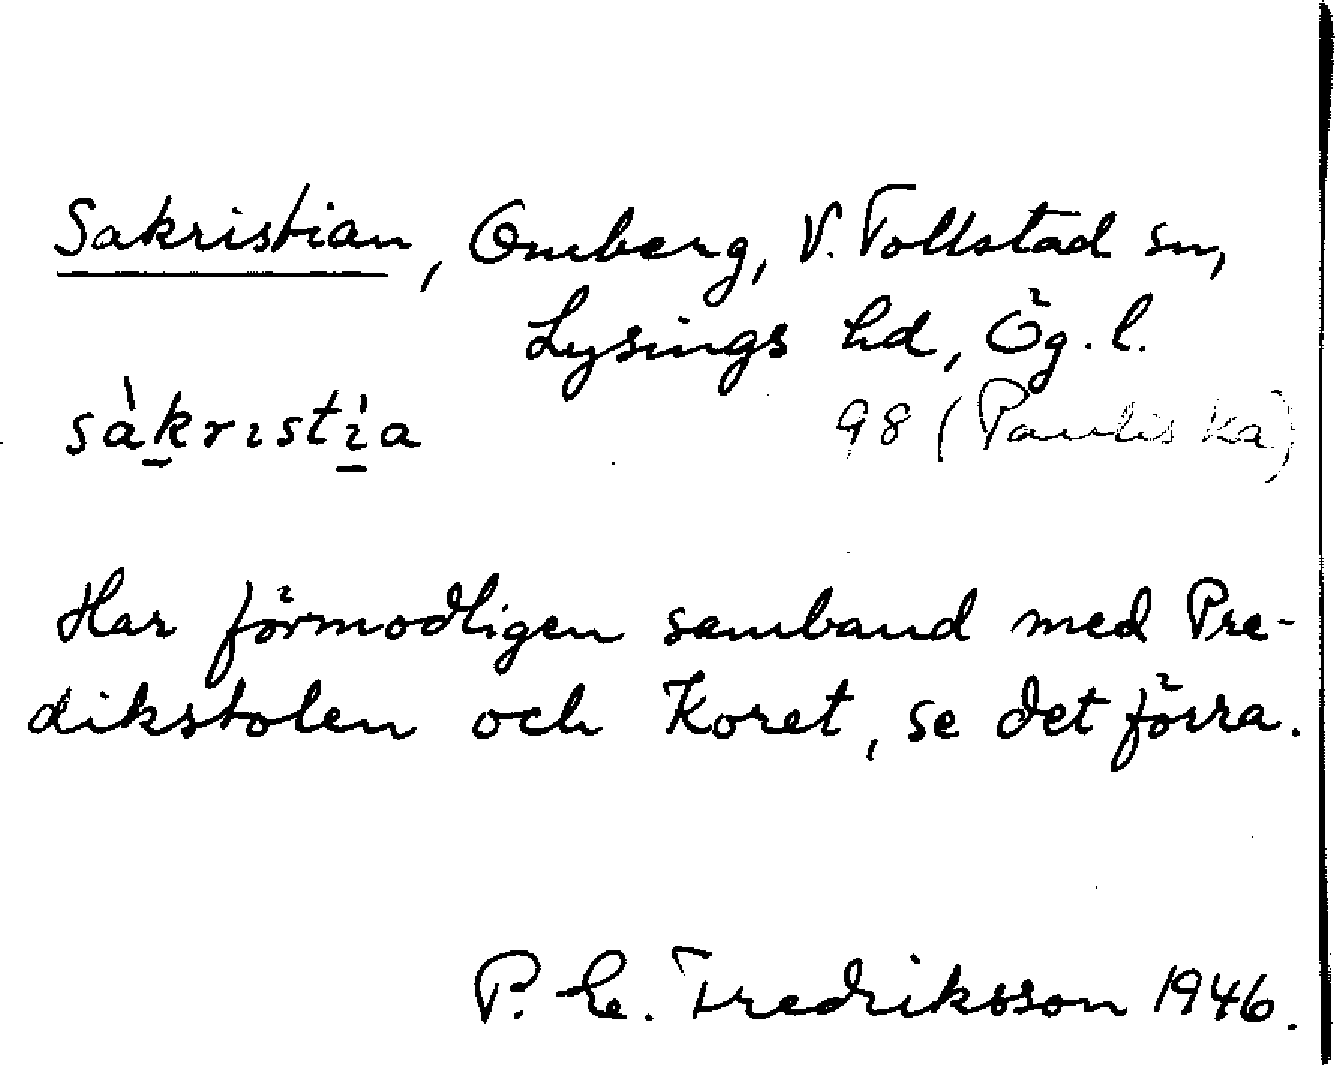 Sakristian, Omberg, V. Tollstad sn,
Lysings hd, Ög. l.
sàkrıstìa
98 (Paulis ka)
Har förmodligen samband med Pre-
dikstolen och Koret, se det förra.
P. E. Fredriksson 1946.